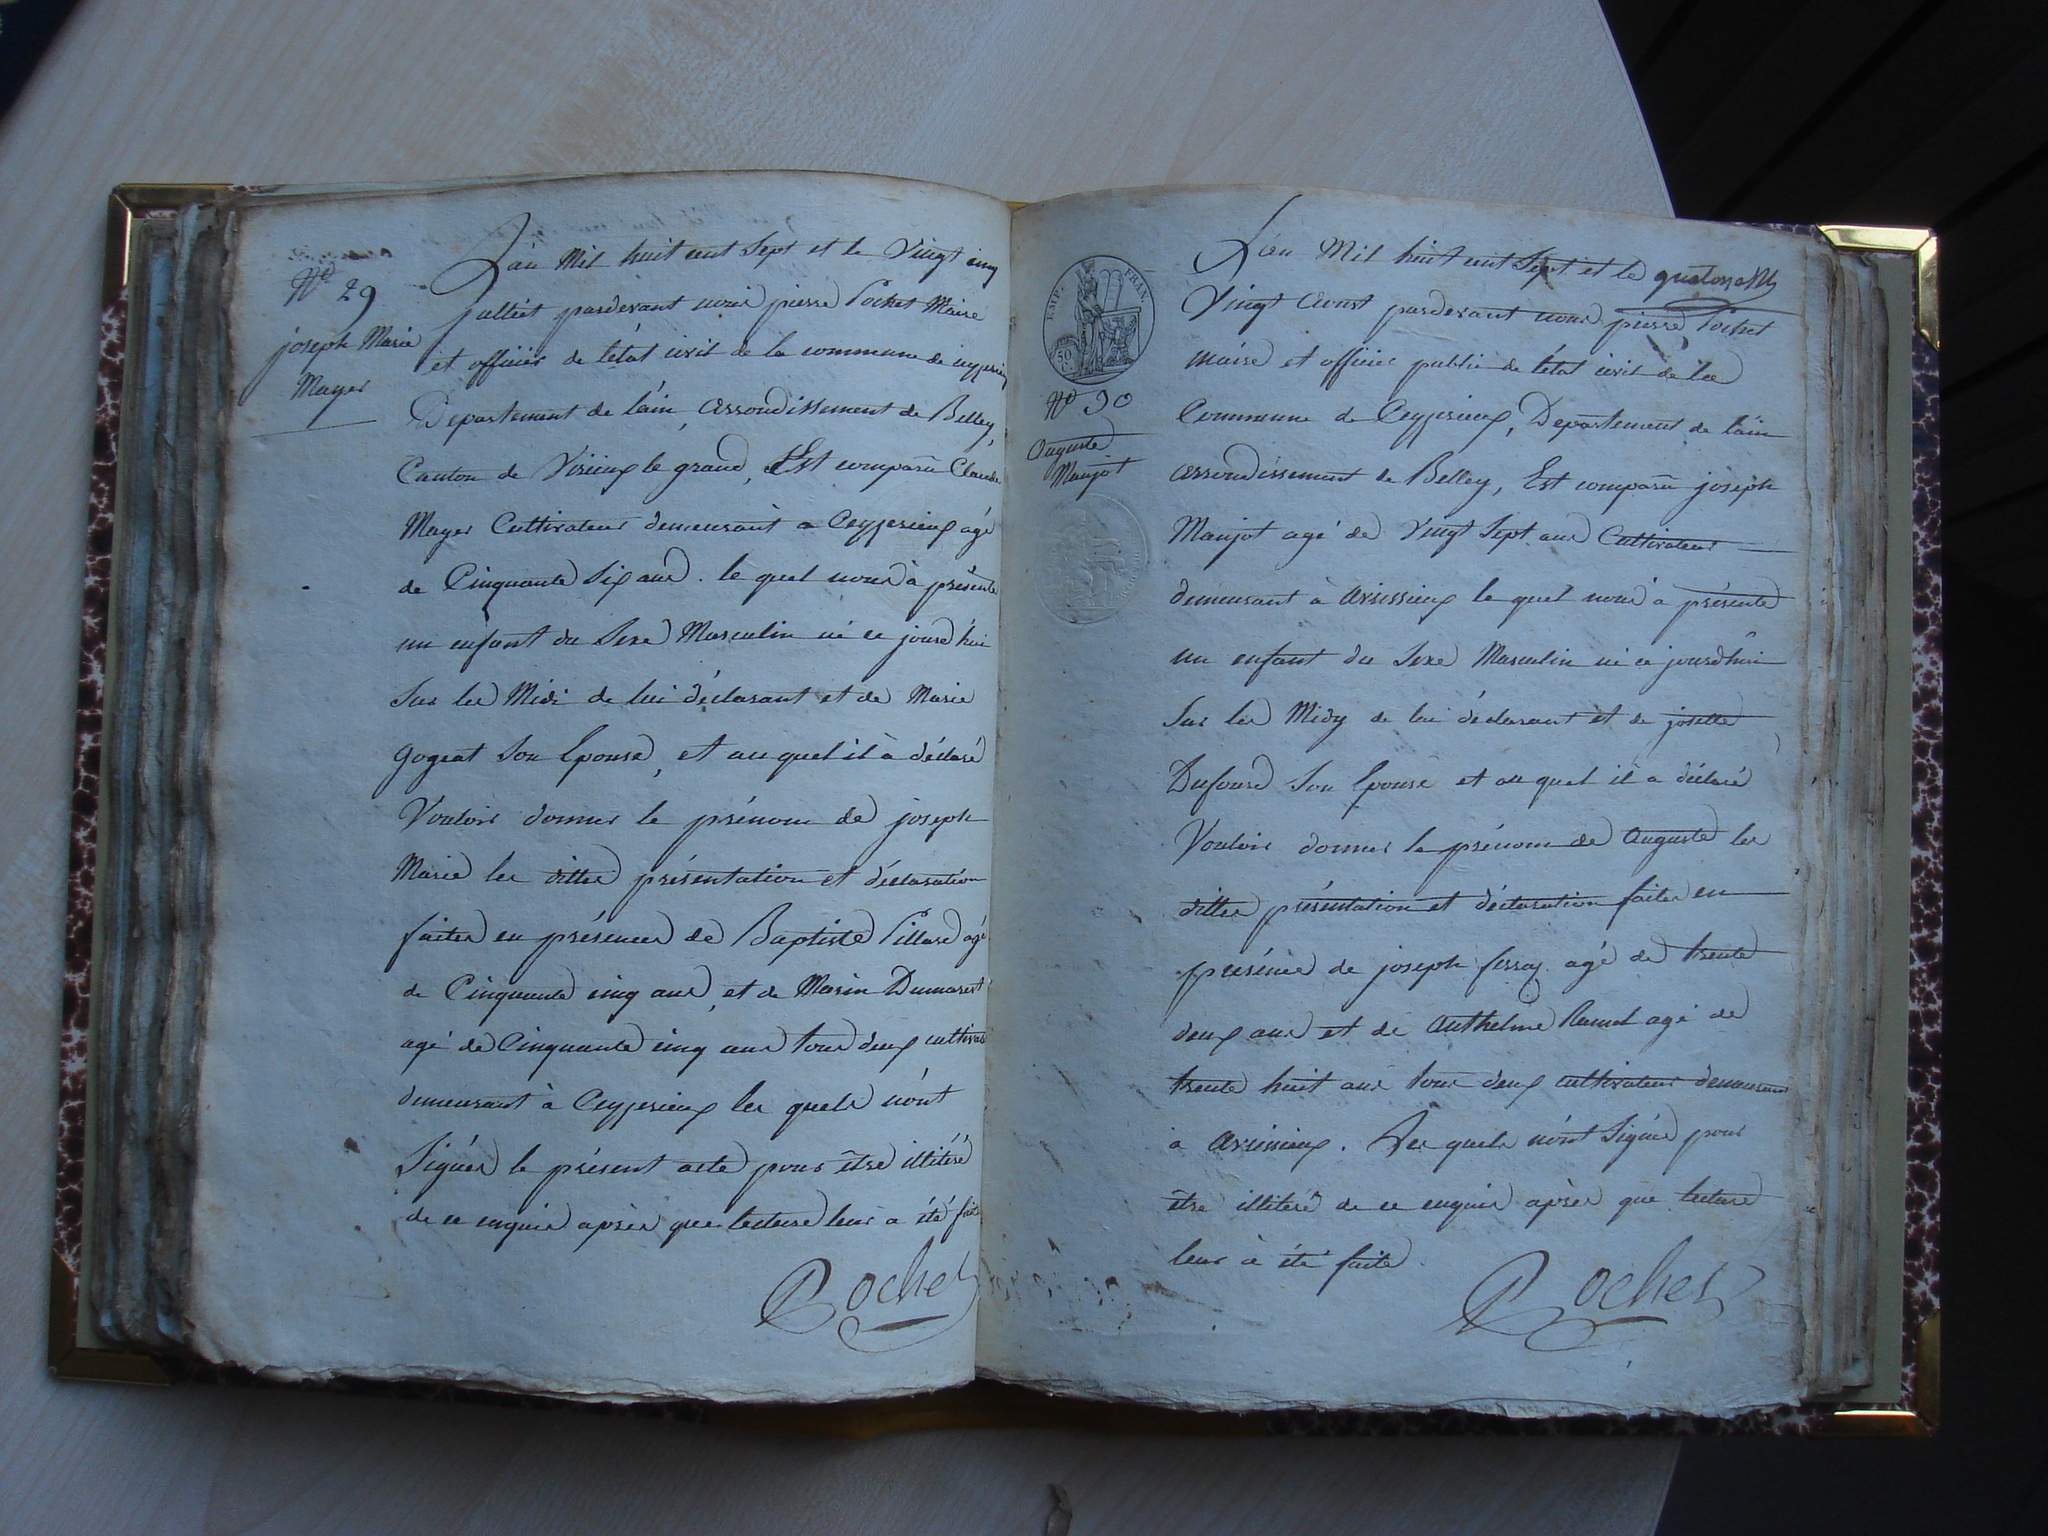 N° 29
joseph Marie
Mayer
L'an Mil huit cent Sept et le Vingt cinq
juillet pardevant nous pierre Pochet Maire
et officier de l'état civil de la commune de ceyzerieu
Departement de l'ain, arrondissement de Belley,
Canton de Virieux le grand, Est comparu Claude
Mayer Cultivateur demeurant a Ceyzerieux agé
de Cinquante Six ans. le quel nous à présenté
un enfant du Sexe Masculin né ce jourd'hui
Sur les Midi de lui déclarant et de Marie
gogeat Son Epouse, et au quel il à déclaré
Vouloir donner le prénom de joseph
Marie les dittes présentation et déclaration
faites en présences de Baptiste Pillard agé
de Cinquante cinq ans, et de Marin Dumarest
agé de Cinquante cinq ans tous deux cultivat
demeurant à Ceyzerieux les quels n'ont
Signés le présent acte pour être illitéré
de ce enquis après que lecture leur a été faite
Pochet
EMP. FRAN.
50 C.
N° 30
Auguste
Maujot
L'an Mil huit cent Sept et le
Vingt Aoust pardevant nous pierre Pochet
maire et officier public de l'état civil de la
Commune de Ceyzerieux, Departement de l'ain
arrondissement de Belley, Est comparu joseph
Maujot agé de Vingt Sept ans Cultivateur
demeurant à avrissieux le quel nous à présenté
un enfant du Sexe Masculin né ce jourd'hui
Sur les Midy de lui déclarant et de josette
Dufourd Son Epouse et au quel il a déclaré
Vouloir donner le prénom de Auguste les
dittes présentation et déclaration faites en
présence de joseph ferraz agé de trente
deux ans et de Anthelme Ramel agé de
trente huit ans tous deux cultivateur demeurant
à avrissieux. Les quels n'ont Signés pour
être illitéré de ce enquis après que lecture
leur à été faite
Pochet